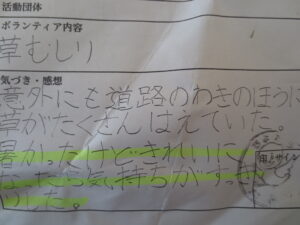 活動団体
ボランティア内容
草むしり
気づき・感想
意外にも道路のわきのほうに
草がたくさんはえていた。
暑かったけどきれいに
なったら気持ちがすっき
りした。
印・サイン